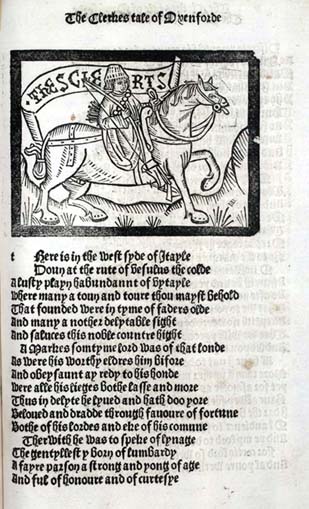 The Clerkes tale of Oxenforde
THESCLE RTS
t Here is in the west syde of Itayle
Doun at the rute of Vesulus the colde
A lusty playn habundannt of vytayle
Where many a toun and toure thou mayst behold
That founded were in tyme of faders olde
And many a nother delytable sight
And saluces this noble countre hight
A Markes somtyme lord was of that londe
As were his worthy eldres him bifore
And obeysaunt ay redy to his honde
Were alle his lieges bothe lasse and more
Thus in delyte he lyued and hath doo yore
Beloued and dradde through fauoure of fortune
Bothe of his lordes and eke of his comune
Therwith he was to speke of lynage
The gentyllest y born of lumbardy
A fayre parson a strong and yong of age
And ful of honoure and of curtesye